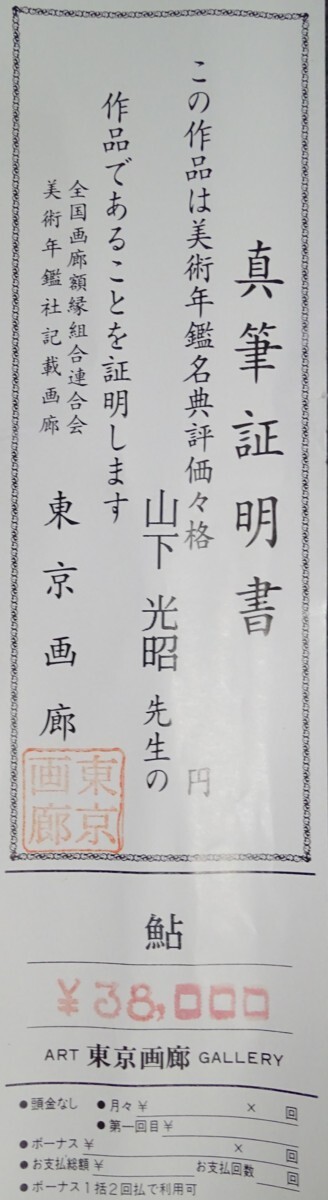 真筆証明書
この作品は美術年鑑名典評価々格 円
山下 光昭 先生の
作品であることを証明します
全国画廊額縁組合連合会
美術年鑑社記載画廊
東京画廊
東京
画廊
鮎
¥38,000
ART 東京画廊 GALLERY
●頭金なし ●月々¥ × 回
●第一回目¥
●ボーナス¥ × 回
●お支払総額¥ お支払回数 回
●ボーナス1括2回払で利用可